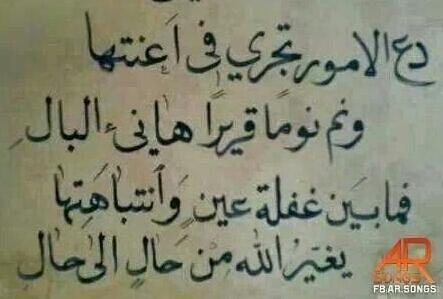 دع الامور تجري في اعنتها
ونم نومًا قريرًا هانىء البالِ
فما بين غفلة عينٍ وَانتباهتها
يغيّرُ اللهُ مِنْ حَالٍ الىٰ حَالِ
AR
FB.AR.SONGS